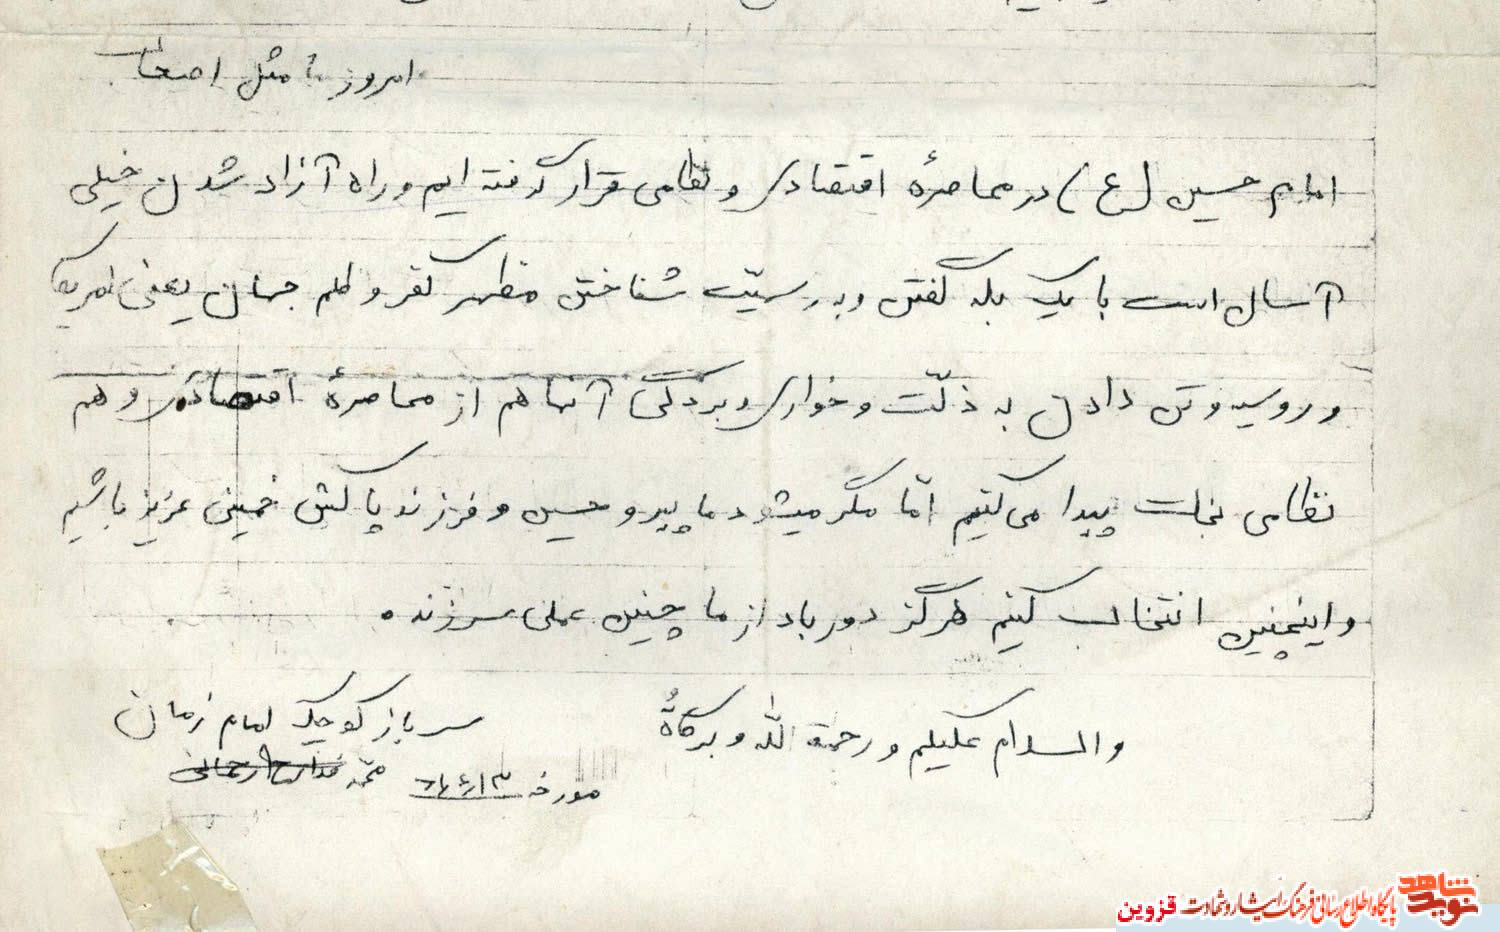 امروز ما مثل اصحاب
امام حسین (ع) در محاصرهٔ اقتصادی و نظامی قرار گرفته ایم و راه آزاد شدن خیلی
آسان است با یک بله گفتن و به رسمیّت شناختن مظهر کفر و ظلم جهان یعنی امریکا
و روسیه و تن دادن به ذلّت و خواری و بردگی آنها هم از محاصرهٔ اقتصادی و هم
نظامی نجات پیدا می کنیم امّا مگر میشود ما پیرو حسین و فرزند پاکش خمینی عزیز باشیم
و اینچنین انتخاب کنیم هرگز دور باد از ما چنین عملی سر زند ه
والسلام علیکم و رحمة الله و برکاتهُ
سرباز کوچک امام زمان
محمد
مورخه
نوید شاهد
پایگاه اطلاع رسانی فرهنگ ایثار و شهادت قزوین